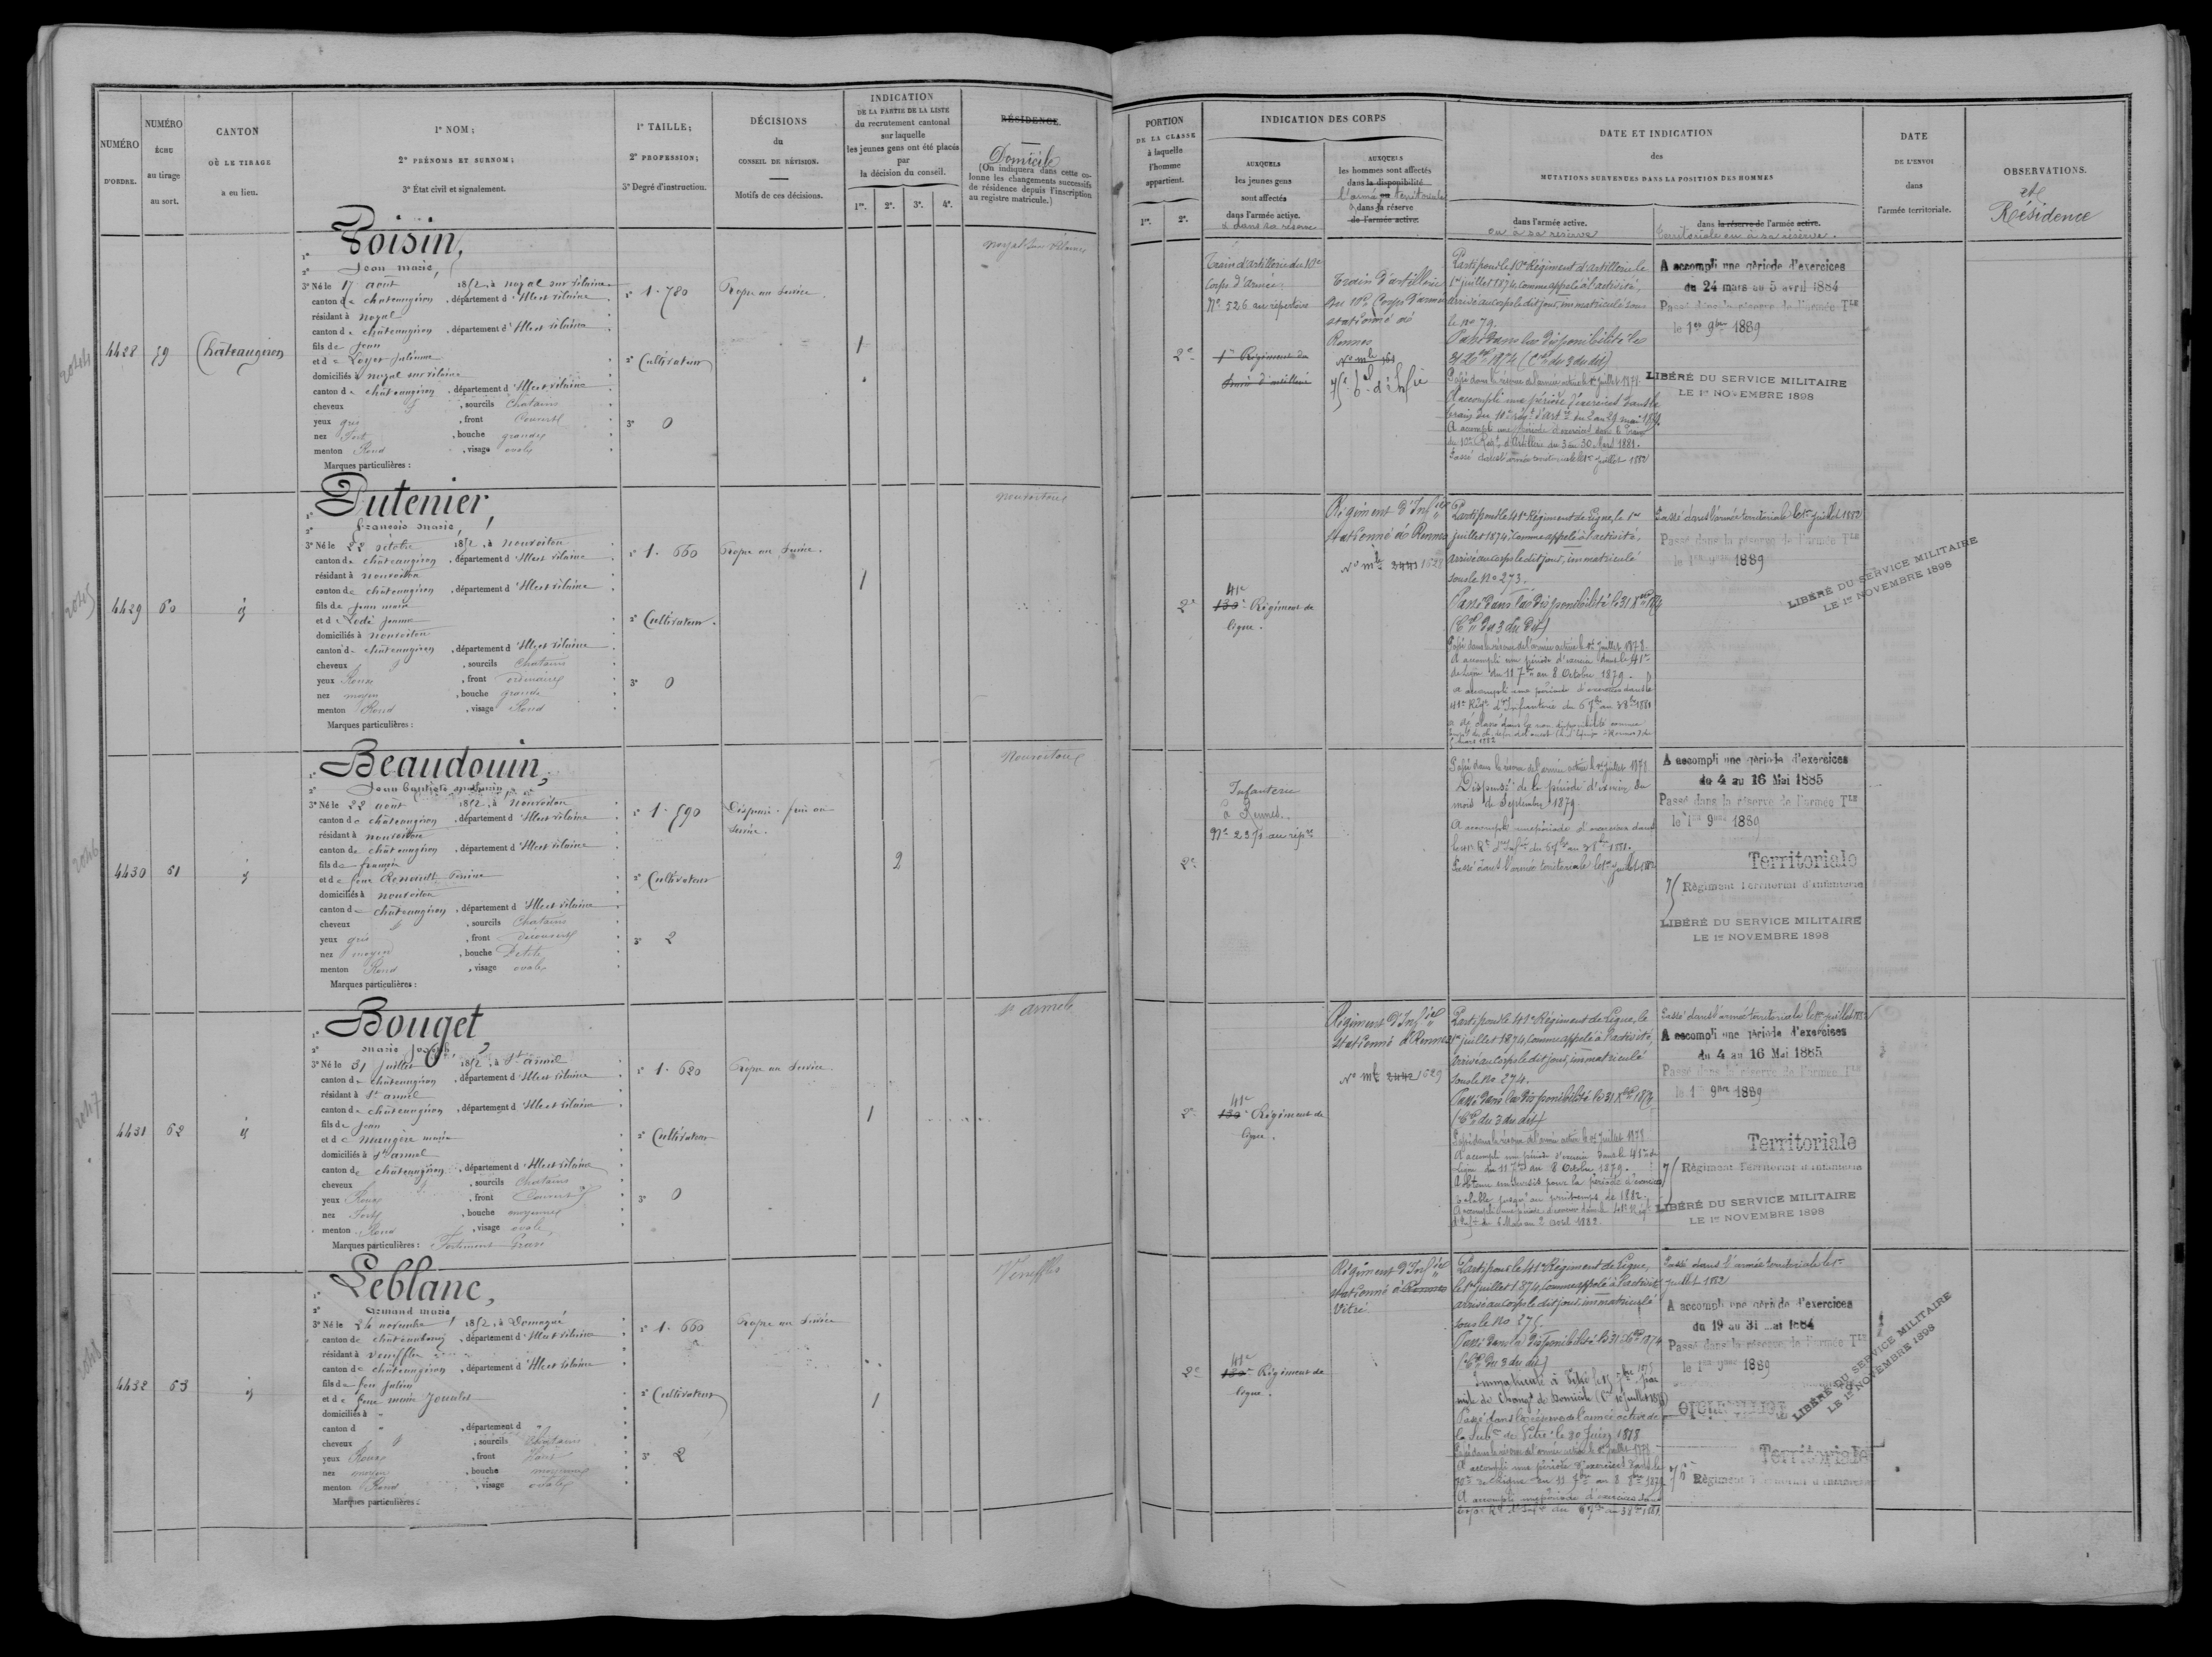 NUMÉRO
D'ORDRE.
NUMÉRO
ÉCHU
au tirage
au sort.
CANTON
OÙ LE TIRAGE
a eu lieu.
1° NOM ;
2° PRÉNOMS ET SURNOM ;
3° État civil et signalement.
1° TAILLE ;
2° PROFESSION ;
3° Degré d'instruction.
DÉCISIONS
du
CONSEIL DE RÉVISION.
Motifs de ces décisions.
INDICATION
DE LA PARTIE DE LA LISTE
du recrutement cantonal
sur laquelle
les jeunes gens ont été placés
par
la décision du conseil.
1re. 2e. 3e. 4e.
RÉSIDENCE.
Domicile
(On indiquera dans cette co-
lonne les changements successifs
de résidence depuis l'inscription
au registre matricule.)
4428 59 Châteaugiron
Poisin,
2° Jean marie,
3° Né le 17 août 1852, à noyal sur vilaine
canton de châteaugiron, département d'Ille et vilaine
résidant à noyal
canton de châteaugiron, département d'Ille et vilaine
fils de Jean
et de Loyer Julienne
domiciliés à noyal sur vilaine
canton de châteaugiron, département d'Ille et vilaine
cheveux , sourcils Chatains
yeux gris , front Couvert
nez Fort , bouche grande
menton Rond , visage ovale
Marques particulières :
1° 1.780
2° Cultivateur
3° 0
Propre au Service.
1
noyal sur vilaine
4429 60 id
Dutenier,
2° françois marie,
3° Né le 22 octobre 1852, à nouvoitou
canton de châteaugiron, département d'Ille et vilaine
résidant à nouvoitou
canton de châteaugiron, département d'Ille et vilaine
fils de Jean marie
et de Lodé Jeanne
domiciliés à nouvoitou
canton de châteaugiron, département d'Ille et vilaine
cheveux , sourcils Chatains
yeux Roux , front ordinaire
nez moyen , bouche grande
menton Rond , visage Rond
Marques particulières :
1° 1.660
2° Cultivateur.
3° 0
Propre au Service.
1
nouvoitou
4430 61 id
Beaudouin,
2° Jean baptiste mathurin
3° Né le 22 août 1852, à nouvoitou
canton de châteaugiron, département d'Ille et vilaine
résidant à nouvoitou
canton de châteaugiron, département d'Ille et vilaine
fils de françois
et de feue Renault Perrine
domiciliés à nouvoitou
canton de châteaugiron, département d'Ille et vilaine
cheveux , sourcils Chatains
yeux gris , front découvert
nez moyen , bouche Petite
menton Rond , visage ovale
Marques particulières :
1° 1.590
2° Cultivateur
3° 2
Dispensé. frère au
Service.
2
Nouvoitou
4431 62 id
Bouget
2° marie Joseph,
3° Né le 31 juillet 1852, à St armel
canton de châteaugiron, département d'Ille et vilaine
résidant à St armel
canton de châteaugiron, département d'Ille et vilaine
fils de Jean
et de Maugère marie
domiciliés à St armel
canton de châteaugiron, département d'Ille et vilaine
cheveux , sourcils Chatains
yeux Roux , front Couvert
nez Fort , bouche moyenne
menton Rond , visage ovale
Marques particulières : Fortement Gravé
1° 1.620
2° Cultivateur
3° 0
Propre au Service.
1
St armel
4432 63 id
Leblanc,
2° armand marie
3° Né le 24 novembre 1852, à Domagné
canton de châteaubourg, département d'Ille et vilaine
résidant à veneffles
canton de châteaugiron, département d'Ille et vilaine
fils de feu Julien
et de feue marie Joualet
domiciliés à "
canton d " , département d "
cheveux , sourcils Chatains
yeux Roux , front Haut
nez moyen , bouche moyenne
menton Rond , visage ovale
Marques particulières :
1° 1.660
2° Cultivateur
3° 2
Propre au Service
1
Veneffles
2044
2045
2046
2047
2048
PORTION
DE LA CLASSE
à laquelle
l'homme
appartient.
1re. 2e.
INDICATION DES CORPS
AUXQUELS
les jeunes gens
sont affectés
dans l'armée active.
et dans sa réserve
AUXQUELS
les hommes sont affectés
dans la disponibilité
l'armée ou territoriale
dans sa réserve
de l'armée active.
DATE ET INDICATION
des
MUTATIONS SURVENUES DANS LA POSITION DES HOMMES
dans l'armée active.
ou à sa réserve
dans la réserve de l'armée active.
territoriale ou à sa réserve.
DATE
DE L'ENVOI
dans
l'armée territoriale.
OBSERVATIONS.
et
Résidence
2e
Train d'artillerie du 10e
Corps d'armée
N° 526 au répertoire
1er Régiment du
train d'artillerie
Train d'artillerie
du 10e Corps d'armée
stationné à
Rennes
Parti pour le 10e Régiment d'artillerie le
1er juillet 1874, comme appelé à l'activité,
arrivé au corps le dit jour, immatriculé sous
le no 79.
Passé dans la disponibilité le
31 Xbre 1874 (Cre du 3 du dit)
Passé dans la réserve de l'armée active le 1er juillet 1878.
A accompli une période d'exercices dans le
A accompli une période d'exercices dans le train
du 10e Régt d'Artillerie du 3 au 30 Avril 1881.
Passé dans l'armée territoriale le 1er juillet 1882
A accompli une période d'exercices
du 24 mars au 5 avril 1884
Passé dans la réserve de l'armée TLE
le 1er 9bre 1889
LIBÉRÉ DU SERVICE MILITAIRE
LE 1er NOVEMBRE 1898
2e
41e
130e Régiment de
ligne.
Régiment d'Infie
stationné à Rennes
N° mle 3441 1628
Parti pour le 41e Régiment de Ligne, le 1er
juillet 1874, comme appelé à l'activité,
arrivé au corps le dit jour, immatriculé
sous le no 273.
Passé dans la disponibilité le 31 Xbre 1874
(Cre du 3 du dit)
Passé dans la réserve de l'armée active le 1er juillet 1878.
A accompli une période d'exercice dans le 41e
de Ligne du 11 7bre au 8 Octobre 1879.
a accompli une période d'exercices dans le
41e Régt d'Infanterie du 6 7bre au 3 8bre 1881
Passé dans l'armée territoriale le 1er juillet 1882
Passé dans la réserve de l'armée TLE
le 1er 9bre 1889
LIBÉRÉ DU SERVICE MILITAIRE
LE 1er NOVEMBRE 1898
2e
Infanterie
à Rennes.
N° 2375 au répre
Passé dans la réserve de l'armée active le 1er juillet 1878
Dispensé de la période d'exercice du
mois de Septembre 1879.
A accompli une période d'exercices dans
Passé dans l'armée territoriale le 1er juillet 1882
A accompli une période d'exercices
du 4 au 16 Mai 1885
Passé dans la réserve de l'armée TLE
le 1er 9bre 1889
Territoriale
75 Régiment Territorial d'infanterie
LIBÉRÉ DU SERVICE MILITAIRE
LE 1er NOVEMBRE 1898
2e
41e
130e Régiment de
ligne.
Régiment d'Infie
stationné à Rennes
N° mle 3442 1629
Parti pour le 41e Régiment de Ligne, le
1er juillet 1874, comme appelé à l'activité,
arrivé au corps le dit jour, immatriculé
sous le no 274.
Passé dans la disponibilité le 31 Xbre 1874
(Cre du 3 du dit)
Passé dans la réserve de l'armée active le 1er juillet 1878
A accompli une période d'exercice dans le 41e de
Ligne du 11 7bre au 8 Octobre 1879.
A obtenu un sursis pour la période d'exercices
valable jusqu'au printemps de 1882.
A accompli une période d'exercices dans le 41e Régt
d'Infie du 6 Mars au 2 avril 1882.
Passé dans l'armée territoriale le 1er juillet 1882
A accompli une période d'exercices
du 4 au 16 Mai 1885
Passé dans la réserve de l'armée TLE
le 1er 9bre 1889
Territoriale
75 Régiment Territorial d'infanterie
LIBÉRÉ DU SERVICE MILITAIRE
LE 1er NOVEMBRE 1898
2e
41e
130e Régiment de
ligne.
Régiment d'Infie
stationné à Rennes
Vitré
Parti pour le 41e Régiment de Ligne,
le 1er juillet 1874, comme appelé à l'activité
arrivé au corps le dit jour, immatriculé
sous le no 275.
Passé dans la disponibilité le 31 Xbre 1874
(Cre du 3 du dit)
Passé dans la réserve de l'armée active de
la Subon de Vitré le 30 Juin 1878
Passé dans la réserve de l'armée active le 1er juillet 1878
A accompli une période d'exercices dans le
70e de Ligne du 11 7bre au 8 8bre 1879
A accompli une période d'exercices dans
Passé dans l'armée territoriale le 1er
juillet 1882
A accompli une période d'exercices
du 19 au 31 mai 1884
Passé dans la réserve de l'armée TLE
le 1er 9bre 1889
Territoriale
LIBÉRÉ DU SERVICE MILITAIRE
LE 1er NOVEMBRE 1898
Territoriale
76 Régiment Territorial d'infanterie